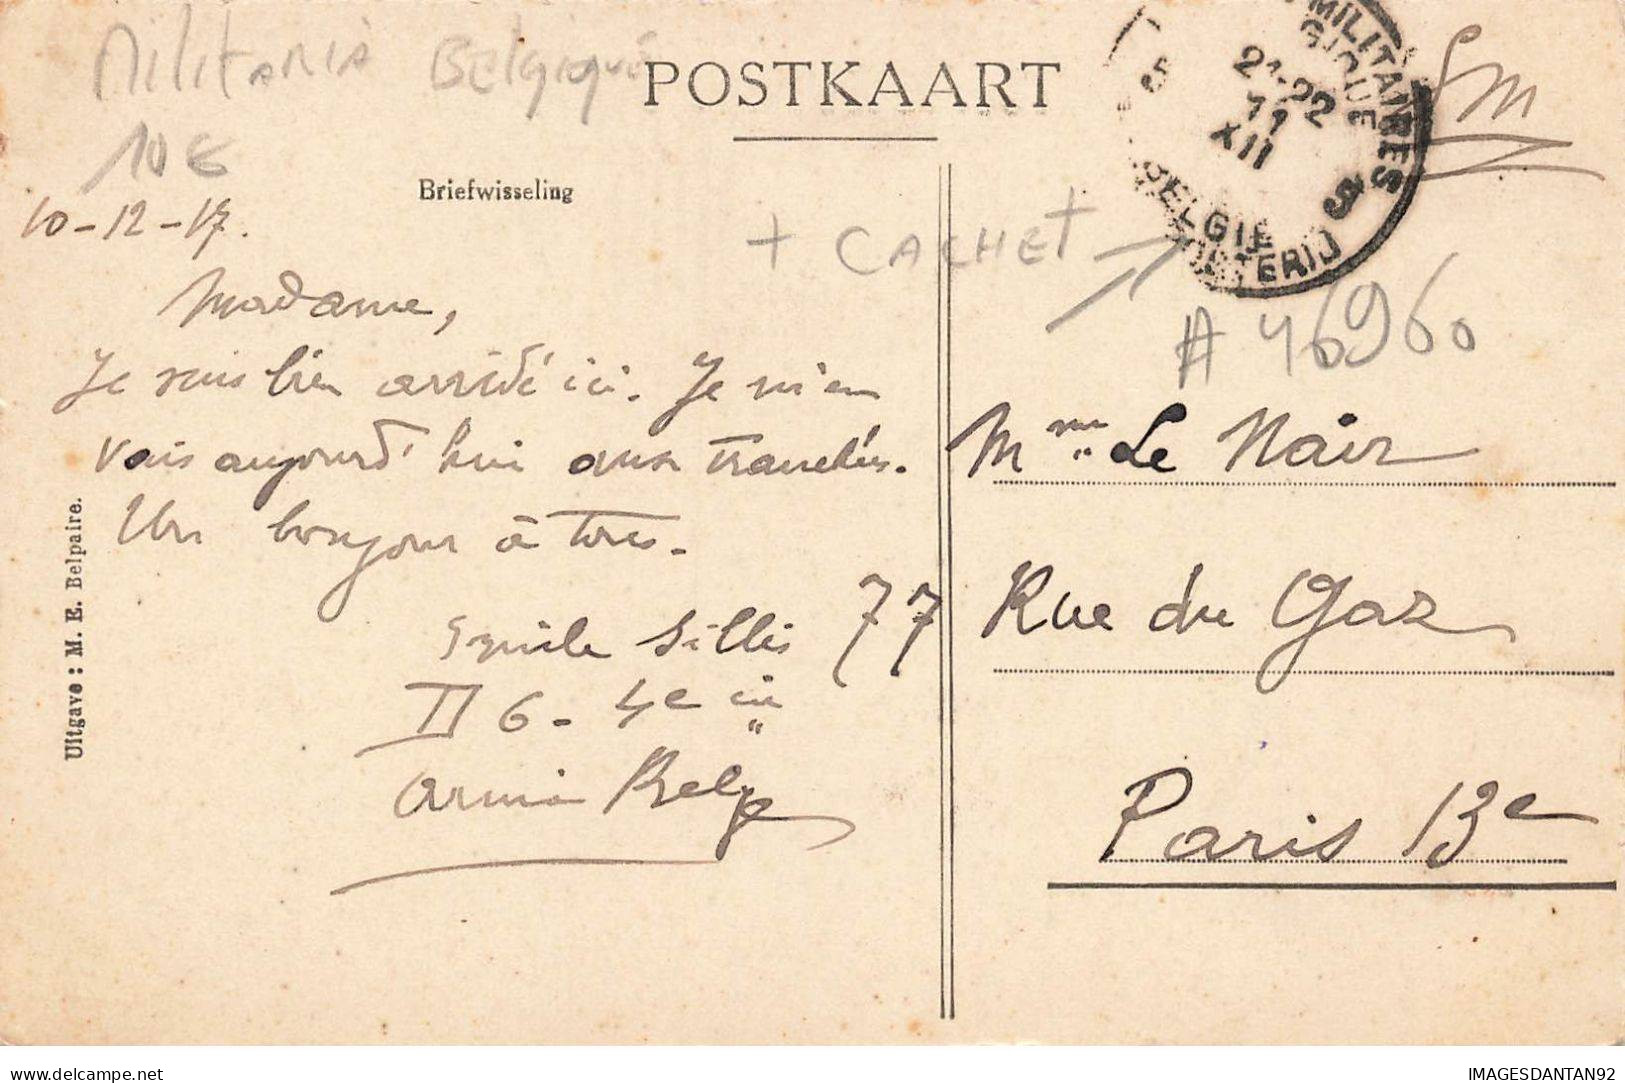 Militaria Belgique
10 €
POSTKAART
Briefwisseling
MILITAIRES
5 21-22 11 XII 5
BELGIE
SM
+ CACHET
# 46960
10-12-17.
Madame,
Je suis bien arrivé ici. Je m'en
vais aujourd'hui aux tranchées.
Un bonjour à tous.
Emile Sillis
II 6 - 4e
Armée Belge
77
Mme Le Nair
Rue du Gaz
Paris 13e
Uitgave : M. E. Belpaire.
delcampe.net
IMAGESDANTAN92